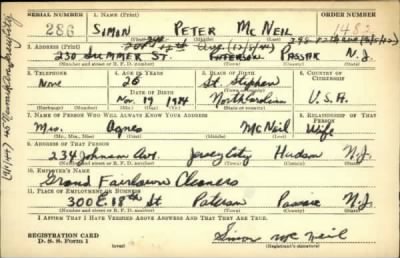 SERIAL NUMBER 1. NAME (Print) ORDER NUMBER
286 SIMON PETER McNEIL
(First) (Middle) (Last)
2. ADDRESS (Print)
230 SUMMER ST. PATERSON PASSAIC N.J.
(Number and street or R. F. D. number) (Town) (County) (State)
3. TELEPHONE 4. AGE IN YEARS 5. PLACE OF BIRTH 6. COUNTRY OF CITIZENSHIP
None 26 St. Stephen
DATE OF BIRTH
Nov. 19 1914 North Carolina U.S.A.
(Mo.) (Day) (Yr.) (State or country)
7. NAME OF PERSON WHO WILL ALWAYS KNOW YOUR ADDRESS 8. RELATIONSHIP OF THAT PERSON
Mrs. Agnes McNeil Wife
(Mr., Mrs., Miss) (First) (Middle) (Last)
9. ADDRESS OF THAT PERSON
234 Johnson Ave. Jersey City Hudson N.J.
(Number and street or R. F. D. number) (Town) (County) (State)
10. EMPLOYER'S NAME
Grand Cleaners
11. PLACE OF EMPLOYMENT OR BUSINESS
300 E. 18th St Paterson Passaic N.J.
(Number and street or R. F. D. number) (Town) (County) (State)
I AFFIRM THAT I HAVE VERIFIED ABOVE ANSWERS AND THAT THEY ARE TRUE.
REGISTRATION CARD
D. S. S. Form 1 (over) Simon McNeil
(Registrant's signature)